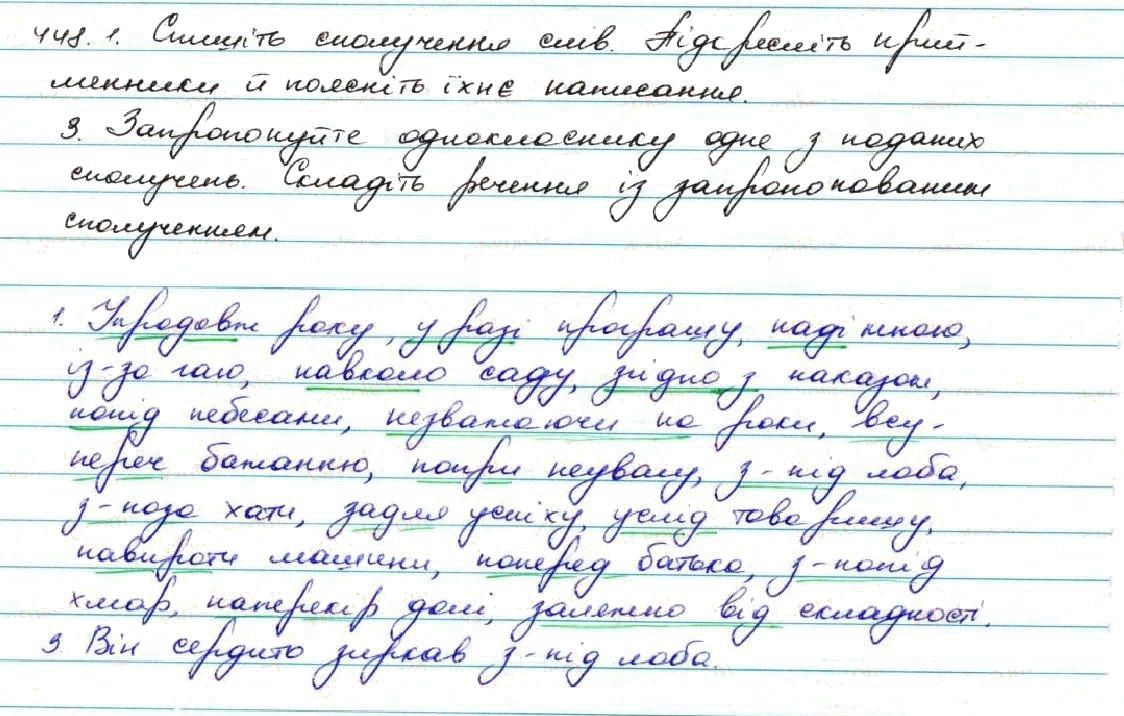 448. 1. Спишіть сполучення слів. Підкресліть прий-
менники й поясніть їхнє написання.
3. Запропонуйте однокласнику одне з поданих
сполучень. Складіть речення із запропонованим
сполученням.
1. Упродовж року, у разі програшу, наді мною,
із-за гаю, навколо саду, згідно з наказом,
попід небесами, незважаючи на роки, всу-
переч бажанню, попри неувагу, з-під лоба,
з-поза хати, задля успіху, услід товаришу,
навпроти машини, поперед батька, з-попід
хмар, наперекір долі, залежно від складності.
3 Він сердито зиркав з-під лоба.